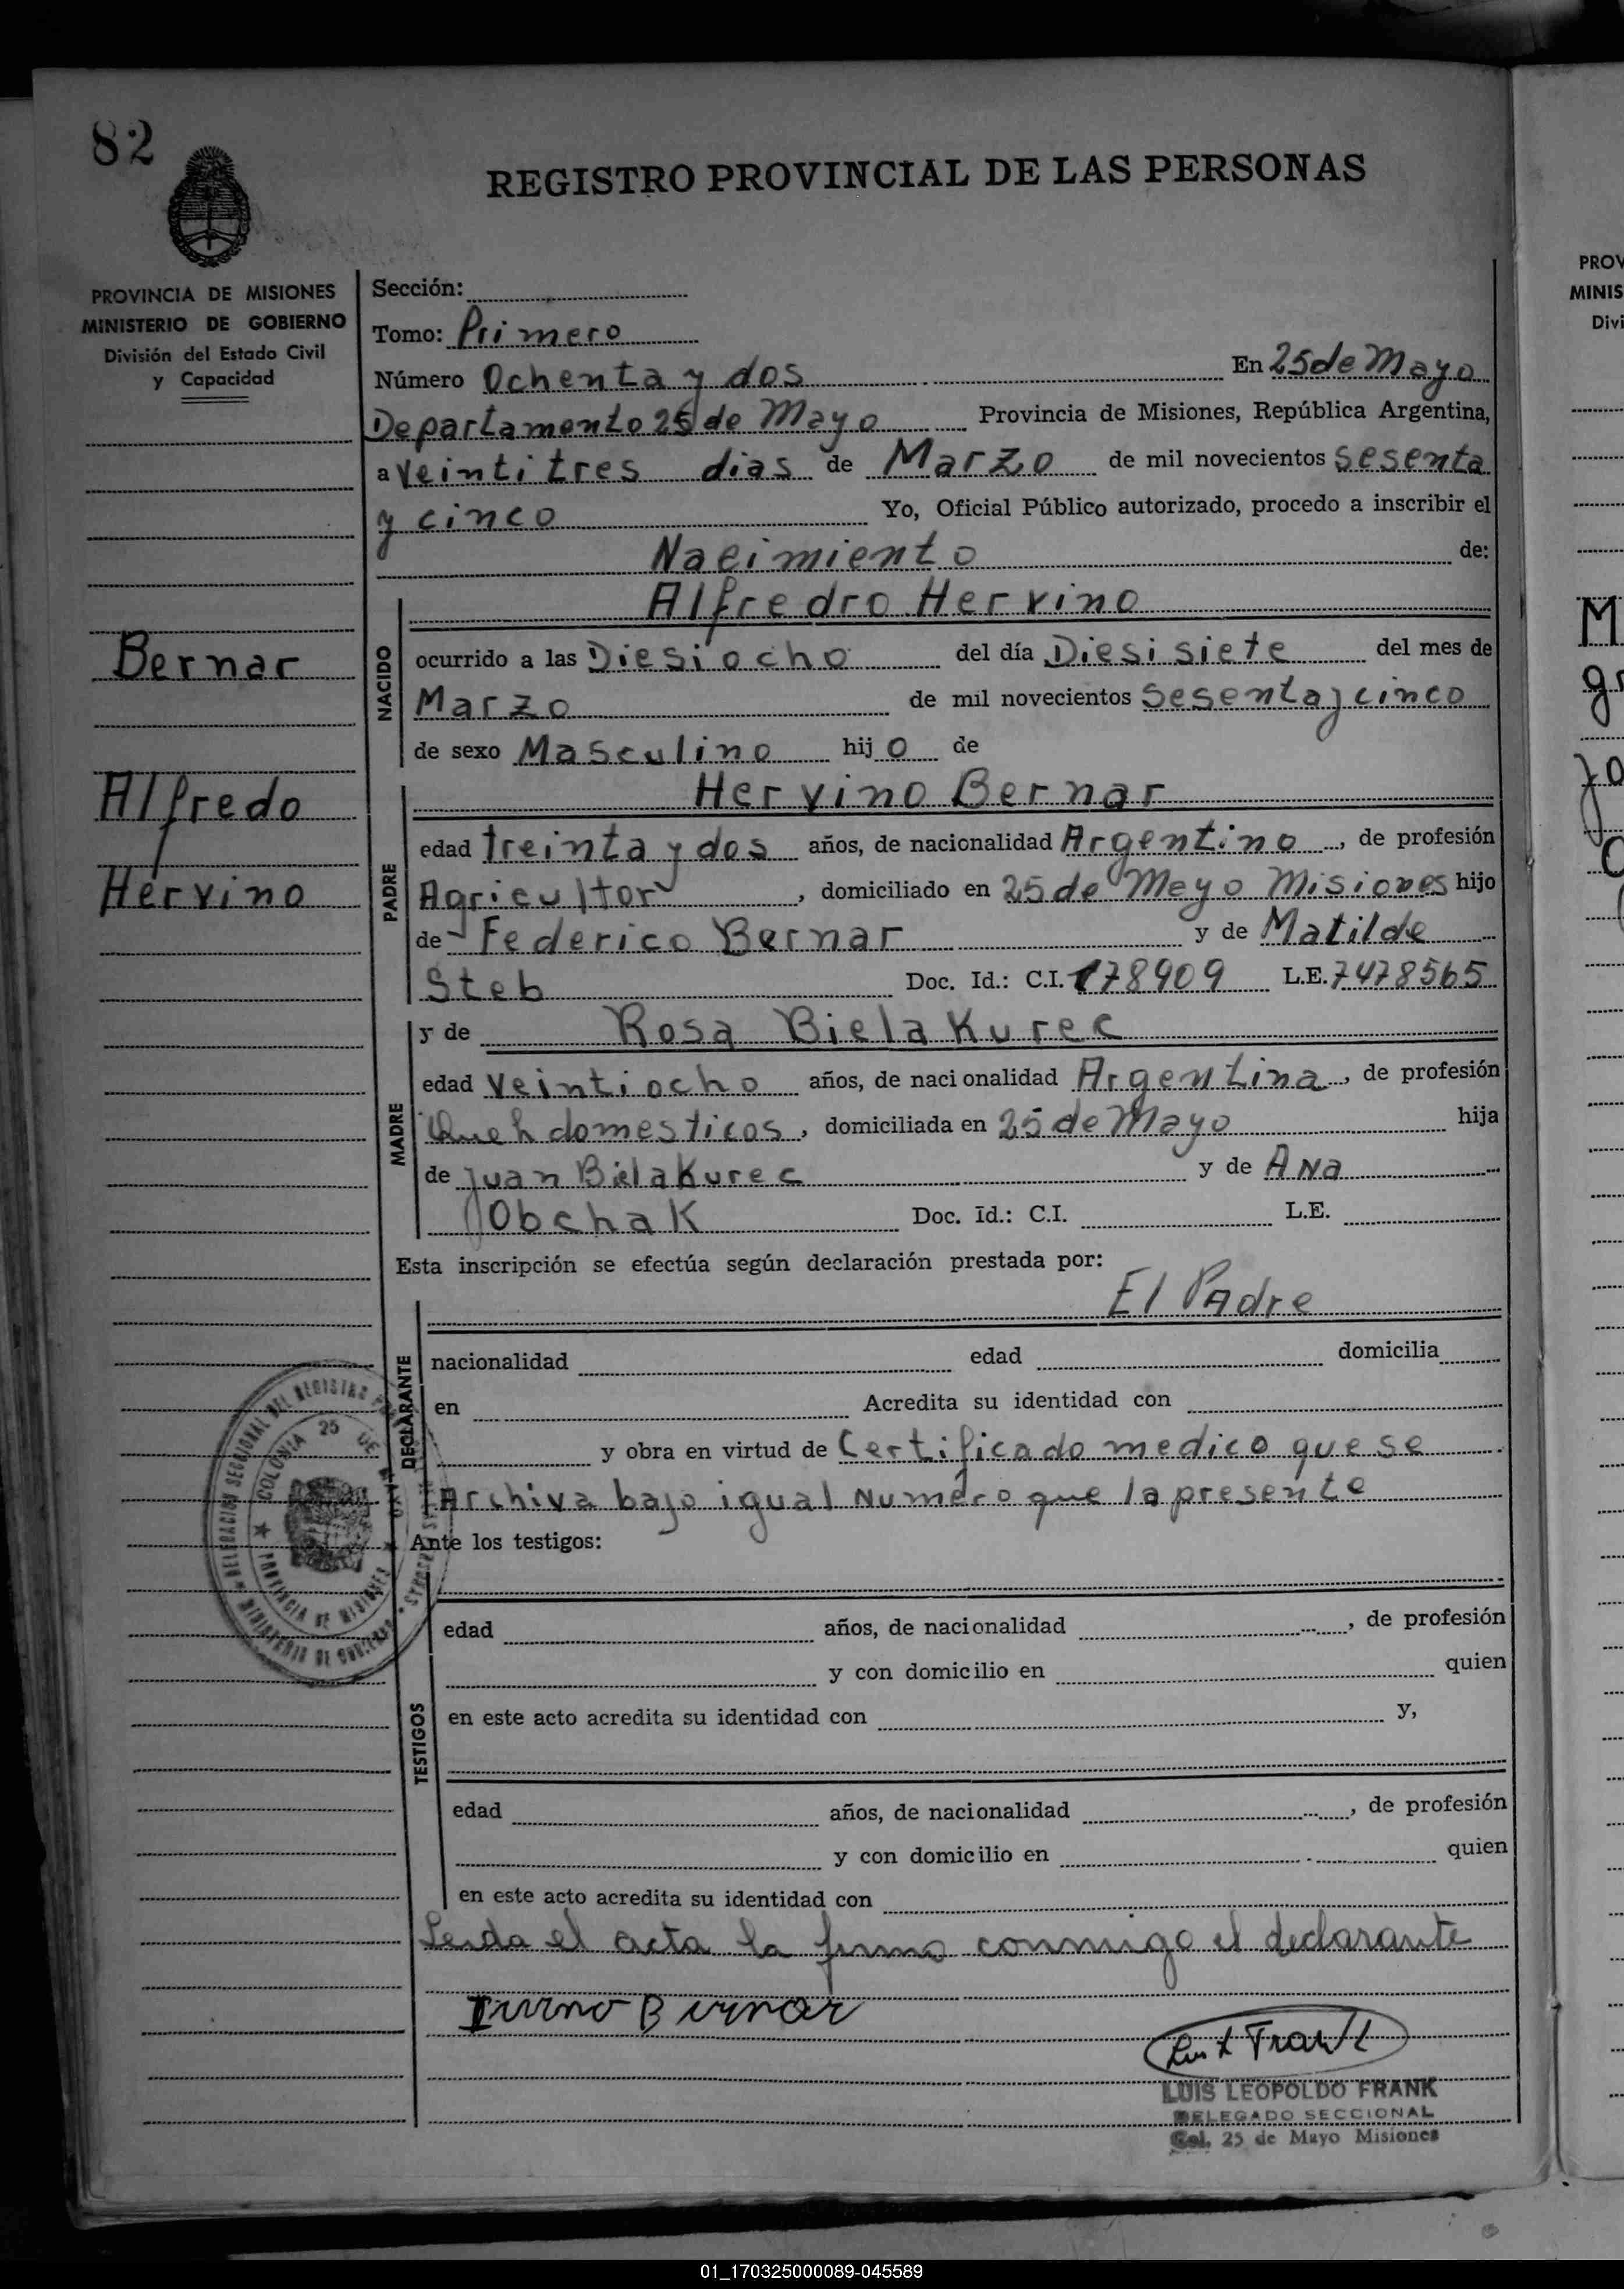 82
REGISTRO PROVINCIAL DE LAS PERSONAS
PROVINCIA DE MISIONES
MINISTERIO DE GOBIERNO
División del Estado Civil
y Capacidad
Bernar
Alfredo
Hervino
Sección:
Tomo: Primero
Número Ochenta y dos En 25 de Mayo
Departamento 25 de Mayo Provincia de Misiones, República Argentina,
a veintitres dias de Marzo de mil novecientos sesenta
y cinco Yo, Oficial Público autorizado, procedo a inscribir el
Nacimiento de:
NACIDO
Alfredro Hervino
ocurrido a las Diesiocho del día Diesisiete del mes de
Marzo de mil novecientos Sesenta y cinco
de sexo Masculino hijo de
PADRE
Hervino Bernar
edad treinta y dos años, de nacionalidad Argentino, de profesión
Agricultor, domiciliado en 25 de Meyo Misiones hijo
de Federico Bernar y de Matilde
Steb Doc. Id.: C.I. 178909 L.E. 7478565
MADRE
y de Rosa Bielakurec
edad Veintiocho años, de nacionalidad Argentina, de profesión
Queh domesticos, domiciliada en 25 de Mayo hija
de Juan Bielakurec y de Ana
Obchak Doc. Id.: C.I. L.E.
Esta inscripción se efectúa según declaración prestada por:
DECLARANTE
El Padre
nacionalidad edad domicilia
en Acredita su identidad con
y obra en virtud de Certificado medico que se
Archiva bajo igual Numero que la presente
DELEGACION SECCIONAL DEL REGISTRO
MINISTERIO DE GOBIERNO
COLONIA 25 DE MAYO
PROVINCIA DE MISIONES
Ante los testigos:
TESTIGOS
edad años, de nacionalidad , de profesión
y con domicilio en quien
en este acto acredita su identidad con y,
edad años, de nacionalidad , de profesión
y con domicilio en quien
en este acto acredita su identidad con
Leida el acta la firma conmigo el declarante
Irvino Bernar
Luis L Frank
LUIS LEOPOLDO FRANK
DELEGADO SECCIONAL
Col. 25 de Mayo Misiones
PROV
MINIS
Divi
M
01_170325000089-045589